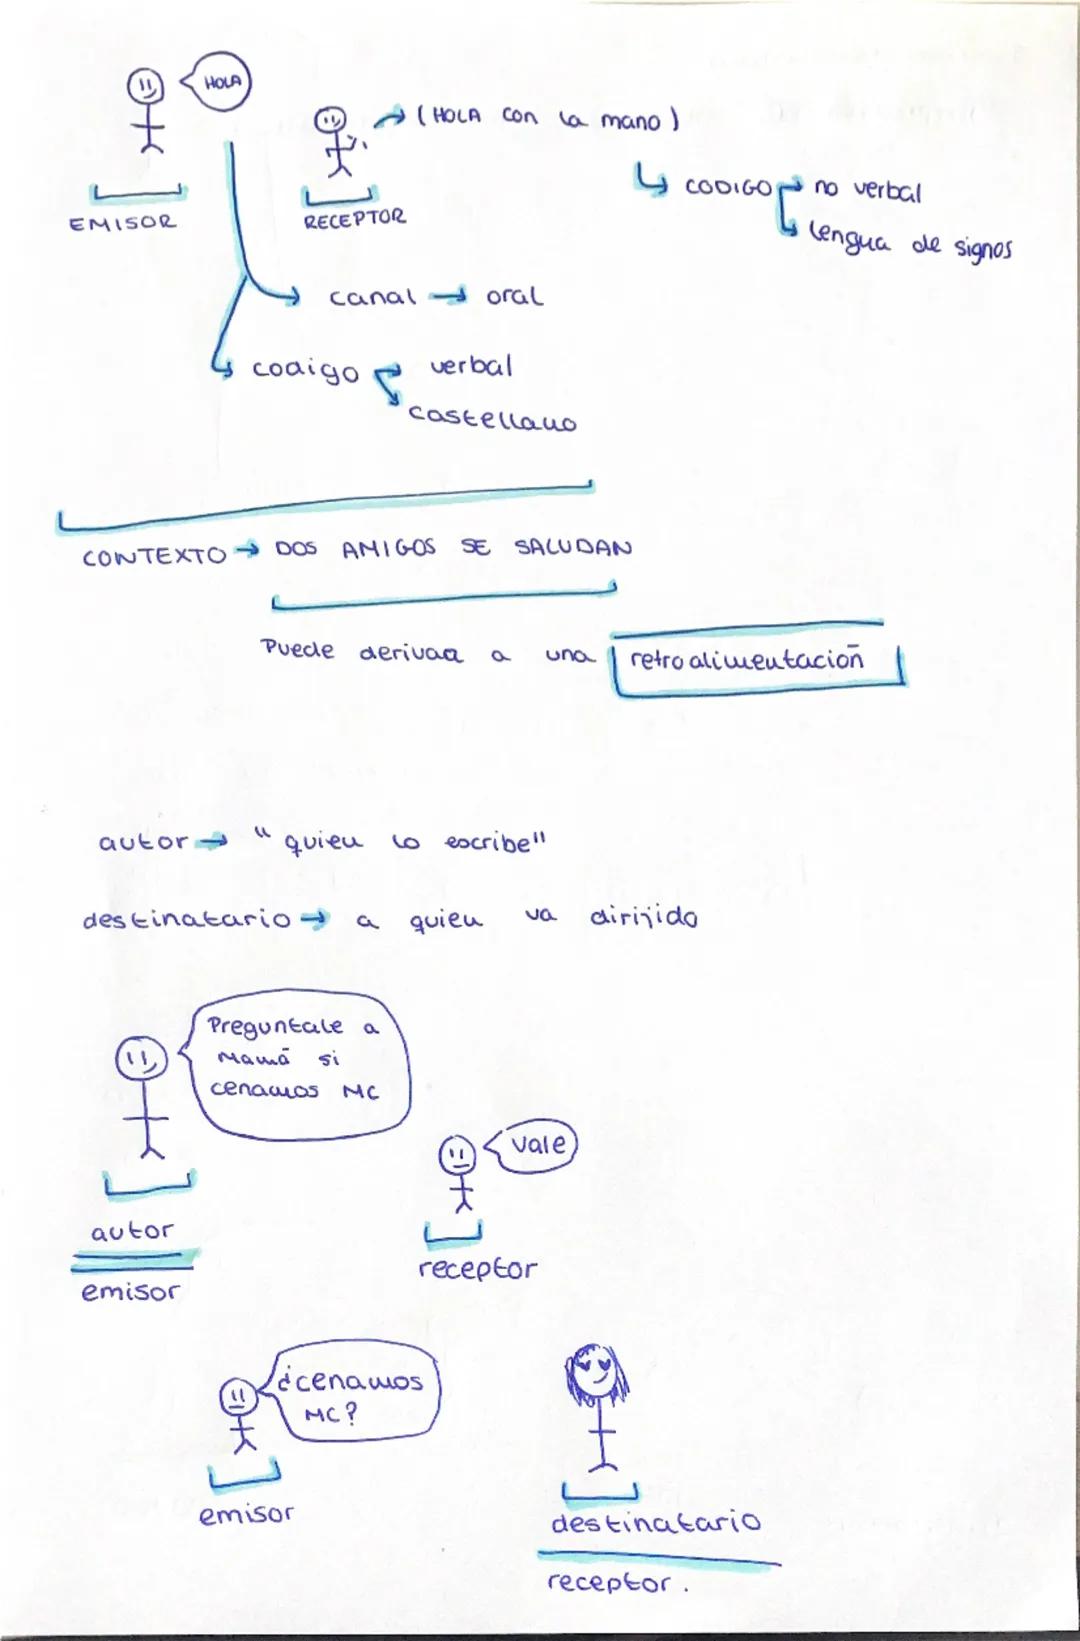 HOLA
(HOLA con la mano)
EMISOR
RECEPTOR
CODIGO → no verbal
lengua de signos
canal → oral
codigo verbal
castellano
CONTEXTO → DOS AMIGOS SE SALUDAN
Puede derivar a una retroalimentación
autor → "quien lo escribe"
destinatario → a quien va dirijido
Preguntale a
Mamá si
cenamos MC
vale
autor
receptor
emisor
¿cenamos
MC?
emisor
destinatario
receptor.